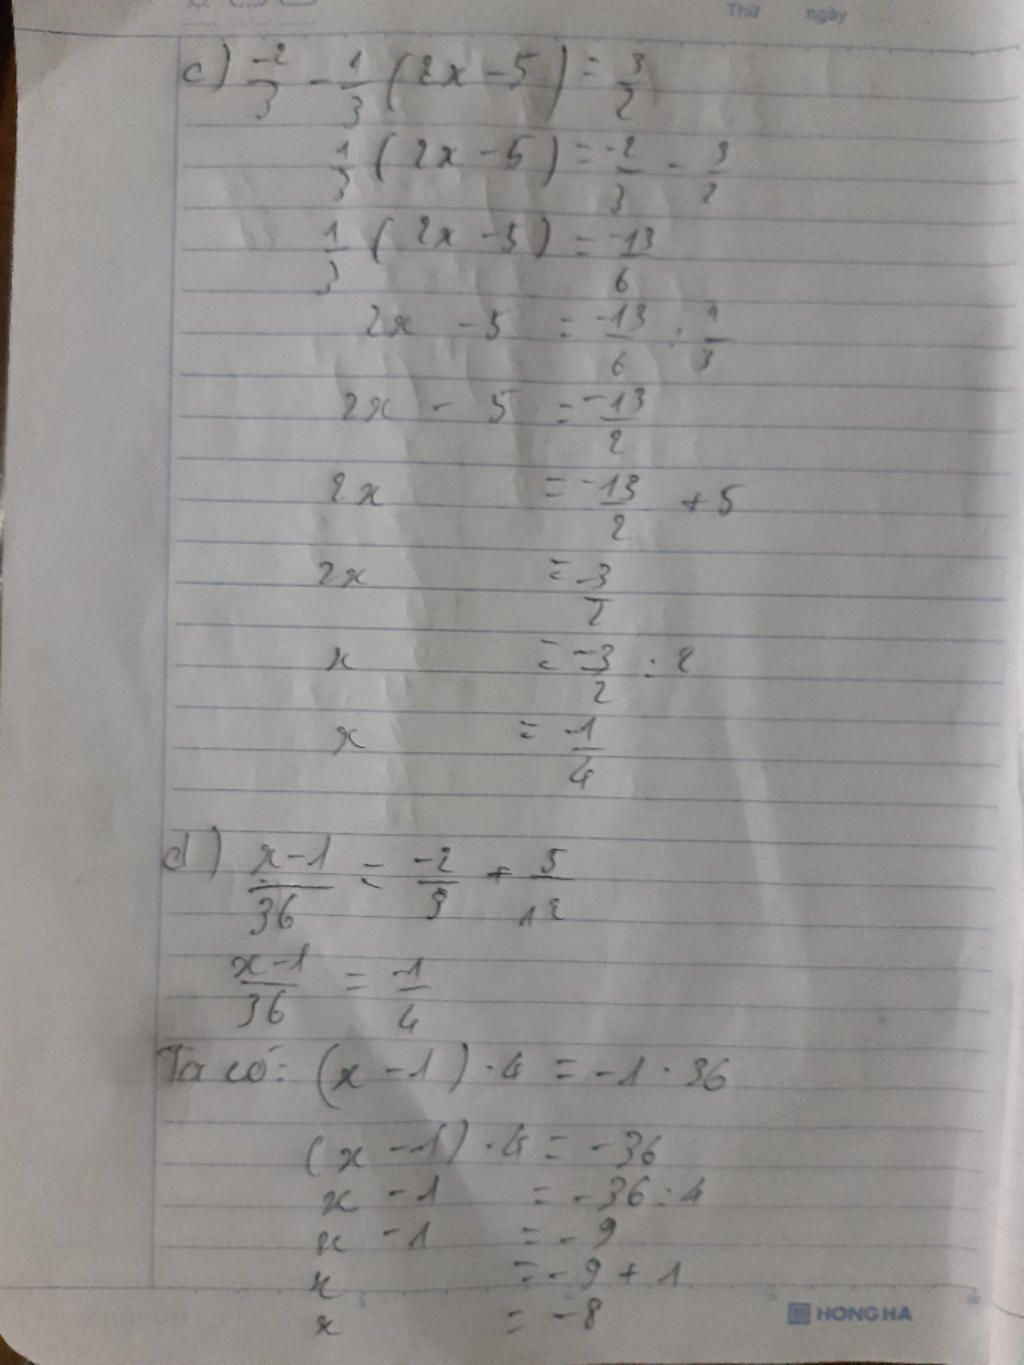 Thứ ngày
c) -2/3 - 1/3 (2x - 5) = 3/2
1/3 (2x - 5) = -2/3 - 3/2
1/3 (2x - 5) = -13/6
2x - 5 = -13/6 : 1/3
2x - 5 = -13/2
2x = -13/2 + 5
2x = -3/2
x = -3/2 : 2
x = -1/4
d) x-1/36 = -2/3 + 5/12
x-1/36 = -1/4
Ta có: (x - 1) . 4 = -1 . 36
(x - 1) . 4 = -36
x - 1 = -36 : 4
x - 1 = -9
x = -9 + 1
x = -8
HONG HA